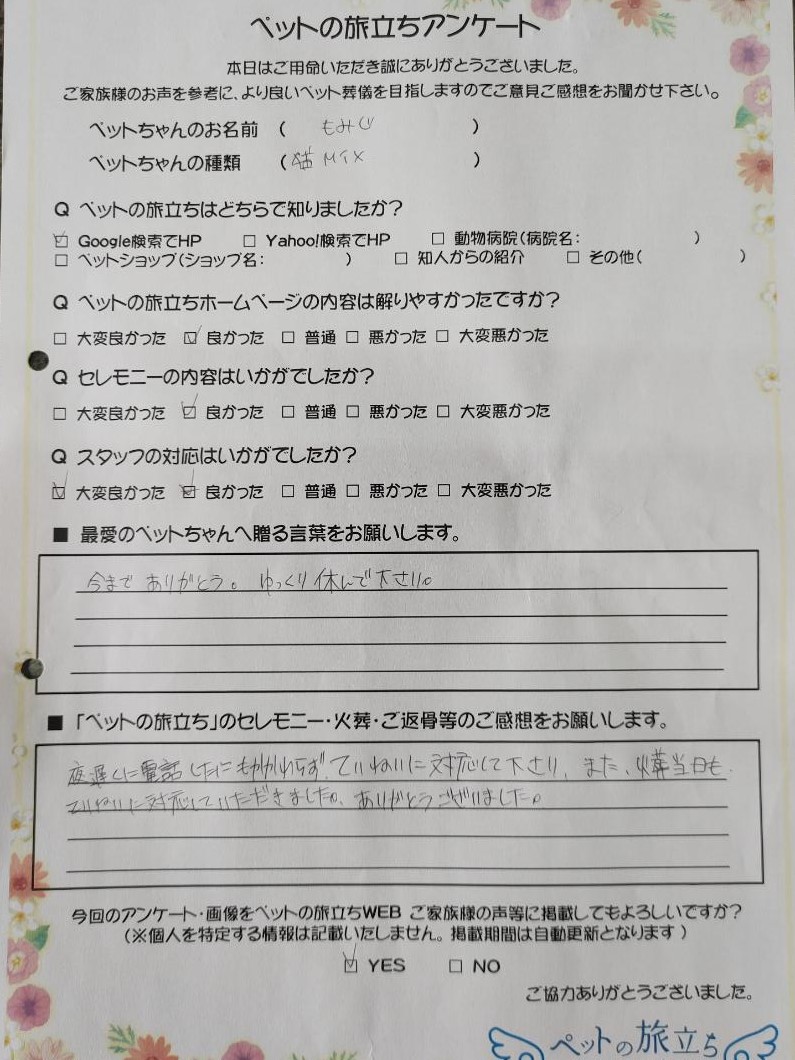 ペットの旅立ちアンケート
本日はご用命いただき誠にありがとうございました。
ご家族様のお声を参考に、より良いペット葬儀を目指しますのでご意見ご感想をお聞かせ下さい。
ペットちゃんのお名前 ( もみじ )
ペットちゃんの種類 ( 猫 MIX )
Q ペットの旅立ちはどちらで知りましたか?
☑ Google検索でHP □ Yahoo!検索でHP □ 動物病院(病院名: )
□ ペットショップ(ショップ名: ) □ 知人からの紹介 □ その他( )
Q ペットの旅立ちホームページの内容は解りやすかったですか?
□ 大変良かった ☑ 良かった □ 普通 □ 悪かった □ 大変悪かった
Q セレモニーの内容はいかがでしたか?
□ 大変良かった ☑ 良かった □ 普通 □ 悪かった □ 大変悪かった
Q スタッフの対応はいかがでしたか?
☑ 大変良かった ☑ 良かった □ 普通 □ 悪かった □ 大変悪かった
■ 最愛のペットちゃんへ贈る言葉をお願いします。
今まで ありがとう。 ゆっくり 休んで下さい。
■ 「ペットの旅立ち」のセレモニー・火葬・ご返骨等のご感想をお願いします。
夜遅くに電話したにもかかわらず、ていねいに対応して下さり、また、火葬当日も
ていねいに対応していただきました。ありがとうございました。
今回のアンケート・画像をペットの旅立ちWEB ご家族様の声等に掲載してもよろしいですか?
(※個人を特定する情報は記載いたしません。掲載期間は自動更新となります )
☑ YES □ NO
ご協力ありがとうございました。
ペットの旅立ち